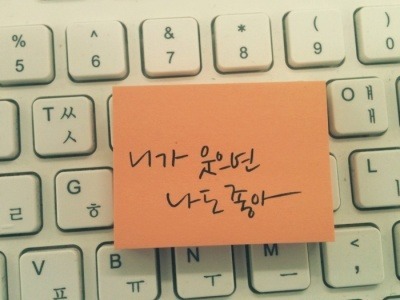 % ^ & * ( )
5 6 7 8 9 0
T ㅆ ㅅ O ㅒ ㅐ
니가 웃으면
나도 좋아
G ㅎ L ㄹ
V ㅍ B N ㅜ ㅡ < ,